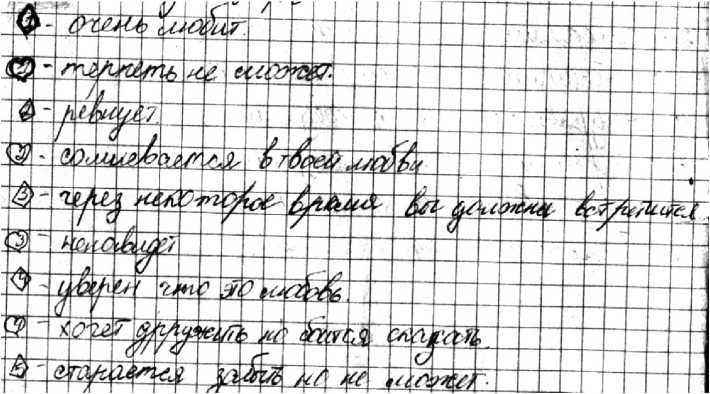 1 - очень любит.
1 - терпеть не может.
2 - ревнует.
2 - сомневается в твоей любви
3 - через некоторое время вы должны встретится.
3 - ненавидет
4 - уверен что это любовь.
4 - хочет дружить но боится сказать.
5 - старается забыть но не может.